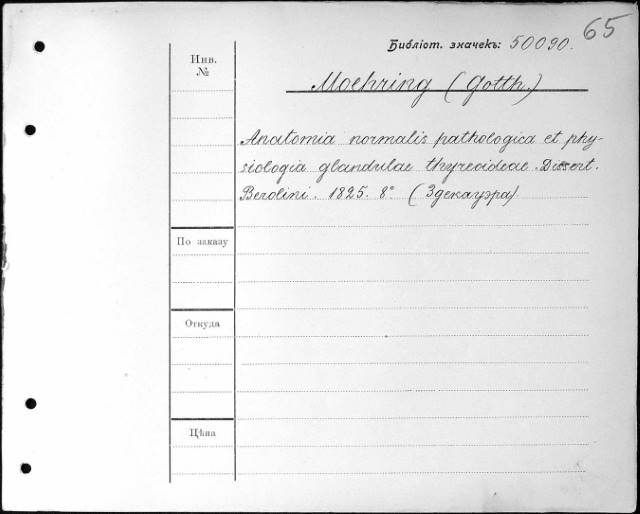 65
Библіот. значекъ: 50090.
Инв.
№
Moehring (Gotth.)
Anatomia normalis pathologica et phy-
siologia glandulae thyreoideae. Dissert.
Berolini. 1825. 8° (Здекауэра)
По заказу
Откуда
Цѣна